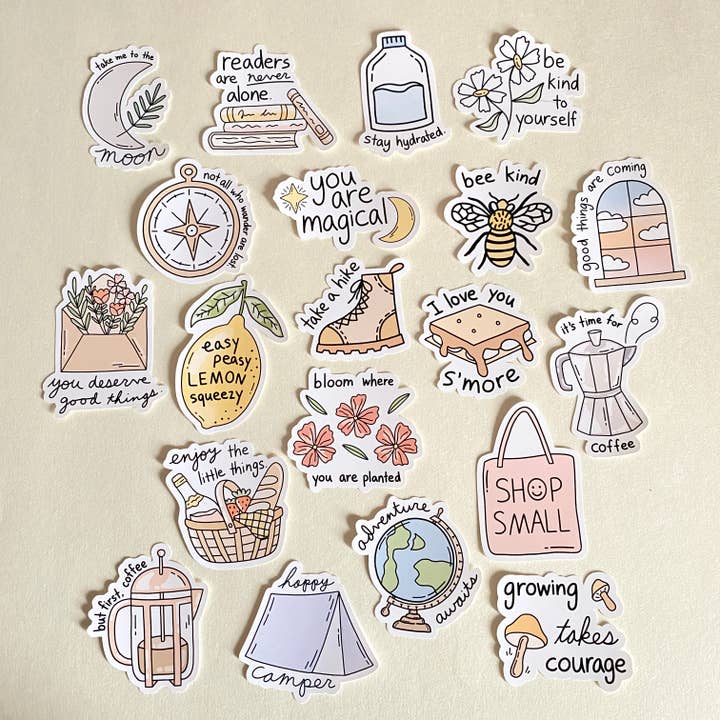 take me to the
moon
readers
are never
alone.
stay hydrated.
be
kind
to
yourself
not all who wander are lost
you
are
magical
bee kind
good things are coming
you deserve
good things.
easy
peasy
LEMON
squeezy
take a hike
I love you
s'more
it's time for
coffee
bloom where
you are planted
enjoy the
little things.
SHOP
SMALL
but first, coffee
happy
camper
adventure
awaits
growing
takes
courage